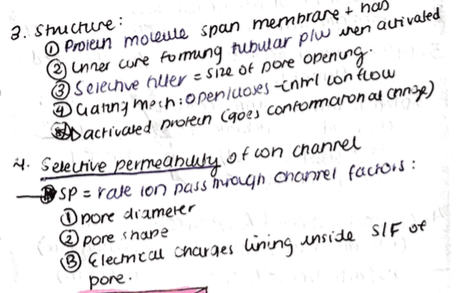 3. Structure:
① Protein molecule span membrane + has
② inner core forming tubular plw when activated
③ Selective filter = size of pore opening.
④ Gating mech: open/closes - cntrl ion flow
activated protein (goes conformational change)
4. Selective permeability of ion channel
SP = rate ion pass through channel factors:
① pore diameter
② pore shape
③ Electrical charges lining inside S/F of
pore.